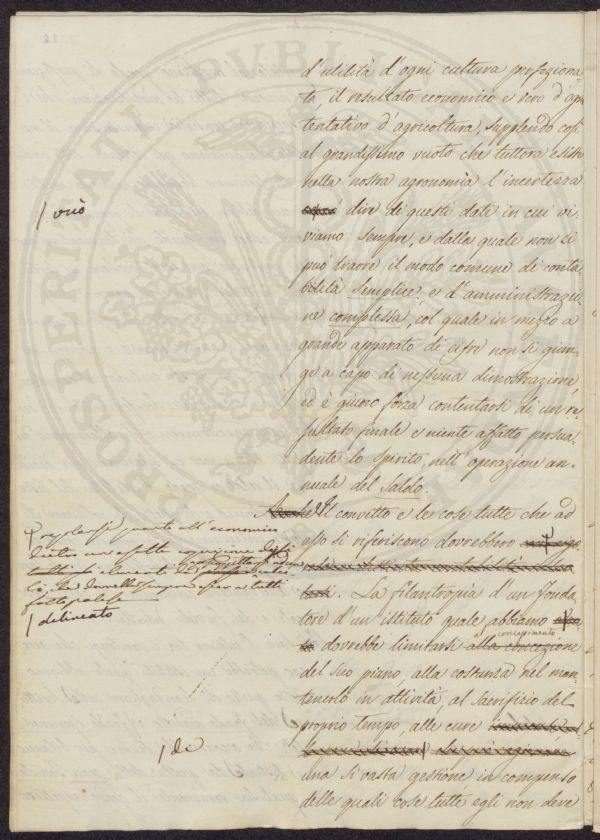 d'utilità d'ogni cultura profeziona-
ta, il resultato economico e vero d'ogni
tentativo d'agricoltura, supplendo così
al grandissimo vuoto che tuttora esiste
nella nostra agronomia l'incertezza
dire di questi dati in cui vi-
viamo sempre, e dalla quale non ci
può trarre il modo comune di conta
bilità semplice, e d'amministrazio-
ne complessa, col quale in mezzo a
grande apparato di cifre non si giun-
ge a capo di nessuna dimostrazione,
ed è giuoco forza contentarsi di un re-
sultato finale e niente affatto persua-
dente lo spirito, nell'operazione an-
nuale del Saldo.
Il convitto e le cose tutte che ad
esso si riferiscono dovrebbero
La filantropia d'un fonda-
tore d'un istituto quale abbiamo
dovrebbe limitarsi alla concezione
al concepimento
del suo piano, alla costanza nel man-
tenerlo in attività, al sacrifizio del
proprio tempo, alle cure
una si vasta gestione in compenso
delle quali cose tutte egli non deve
/ ciò
regolarsi quanto all'economico
dietro una esatta
tutti
fatto palese
/ delineato
/ di
PROSPERITATI PVBLICAE